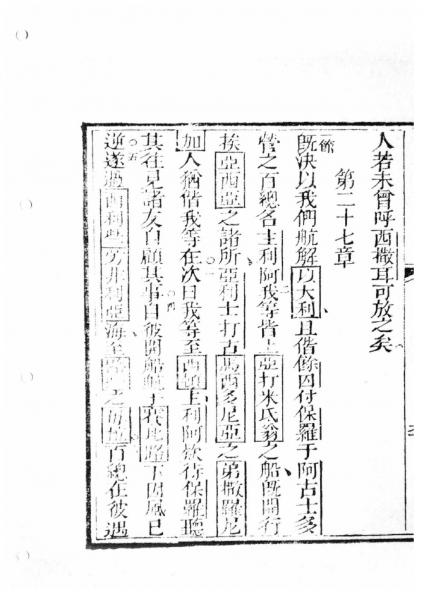 人若未曾呼西撒耳可放之矣
第二十七章
既決以我們航解以大利且偕餘囚付保羅于阿古士多
營之百總名主利阿我等皆上亞打米氐翁之船既開行
挨亞西亞之諸所亞利士打古馬西多尼亞之弟撒羅尼
加人猶偕我等在次日我等至西頓主利阿欲待保羅聽
其往見諸友自顧其事自彼開船於下因風已
逆遂過西利些亞海至之百總在彼遇